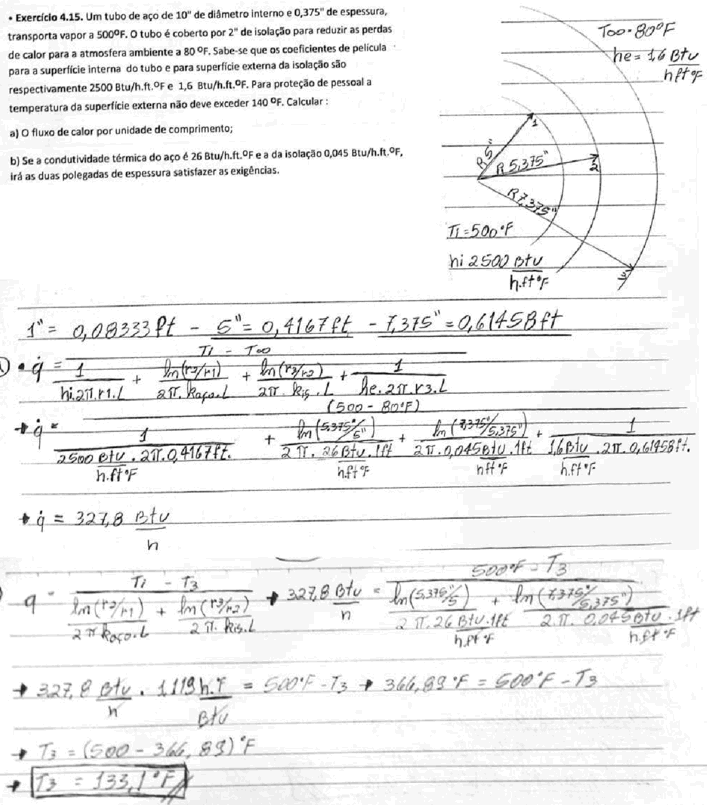 • Exercício 4.15. Um tubo de aço de 10" de diâmetro interno e 0,375" de espessura,
transporta vapor a 500ºF. O tubo é coberto por 2" de isolação para reduzir as perdas
de calor para a atmosfera ambiente a 80 ºF. Sabe-se que os coeficientes de película
para a superfície interna do tubo e para superfície externa da isolação são
respectivamente 2500 Btu/h.ft.ºF e 1,6 Btu/h.ft.ºF. Para proteção de pessoal a
temperatura da superfície externa não deve exceder 140 ºF. Calcular :
a) O fluxo de calor por unidade de comprimento;
b) Se a condutividade térmica do aço é 26 Btu/h.ft.ºF e a da isolação 0,045 Btu/h.ft.ºF,
irá as duas polegadas de espessura satisfazer as exigências.
T∞=80°F
he = 1,6 Btu
hft°F
1
R5"
R5,375"
2
R7,375"
Ti=500°F
hi 2500 Btu
h.ft°F
1" = 0,08333ft - 5" = 0,4167ft - 7,375" = 0,61458ft
Ti - T∞
• q̇ = 1 + ln(r2/r1) + ln(r3/r2) + 1
hi.2π.r1.L 2π.kaço.L 2π kis.L he.2π.r3.L
(500 - 80°F)
→ q̇ = 1 + ln(5,375"/5") + ln(7,375"/5,375") + 1
2500 Btu . 2π.0,4167ft. 2π. 26Btu.1ft 2π.0,045Btu.1ft 1,6Btu .2π.0,61458ft.
h.ft°F h.ft°F hft°F h.ft°F
→ q̇ = 327,8 Btu
h
q = Ti - T3 → 327,8 Btu = 500°F - T3
ln(r2/r1) + ln(r3/r2) h ln(5,375"/5) + ln(7,375"/5,375")
2πkaço.L 2π.kis.L 2π.26Btu.1ft 2.π. 0,045Btu.1ft
h.ft°F h.ft°F
→ 327,8 Btu . 1,119h.°F = 500°F - T3 → 366,89°F = 500°F - T3
h Btu
→ T3 = (500 - 366,89)°F
→ T3 = 133,1°F